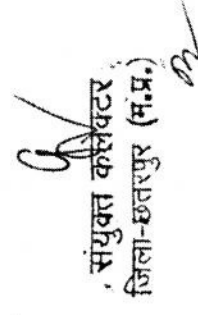 संयुक्त कलेक्टर
जिला-छतरपुर (म.प्र.)